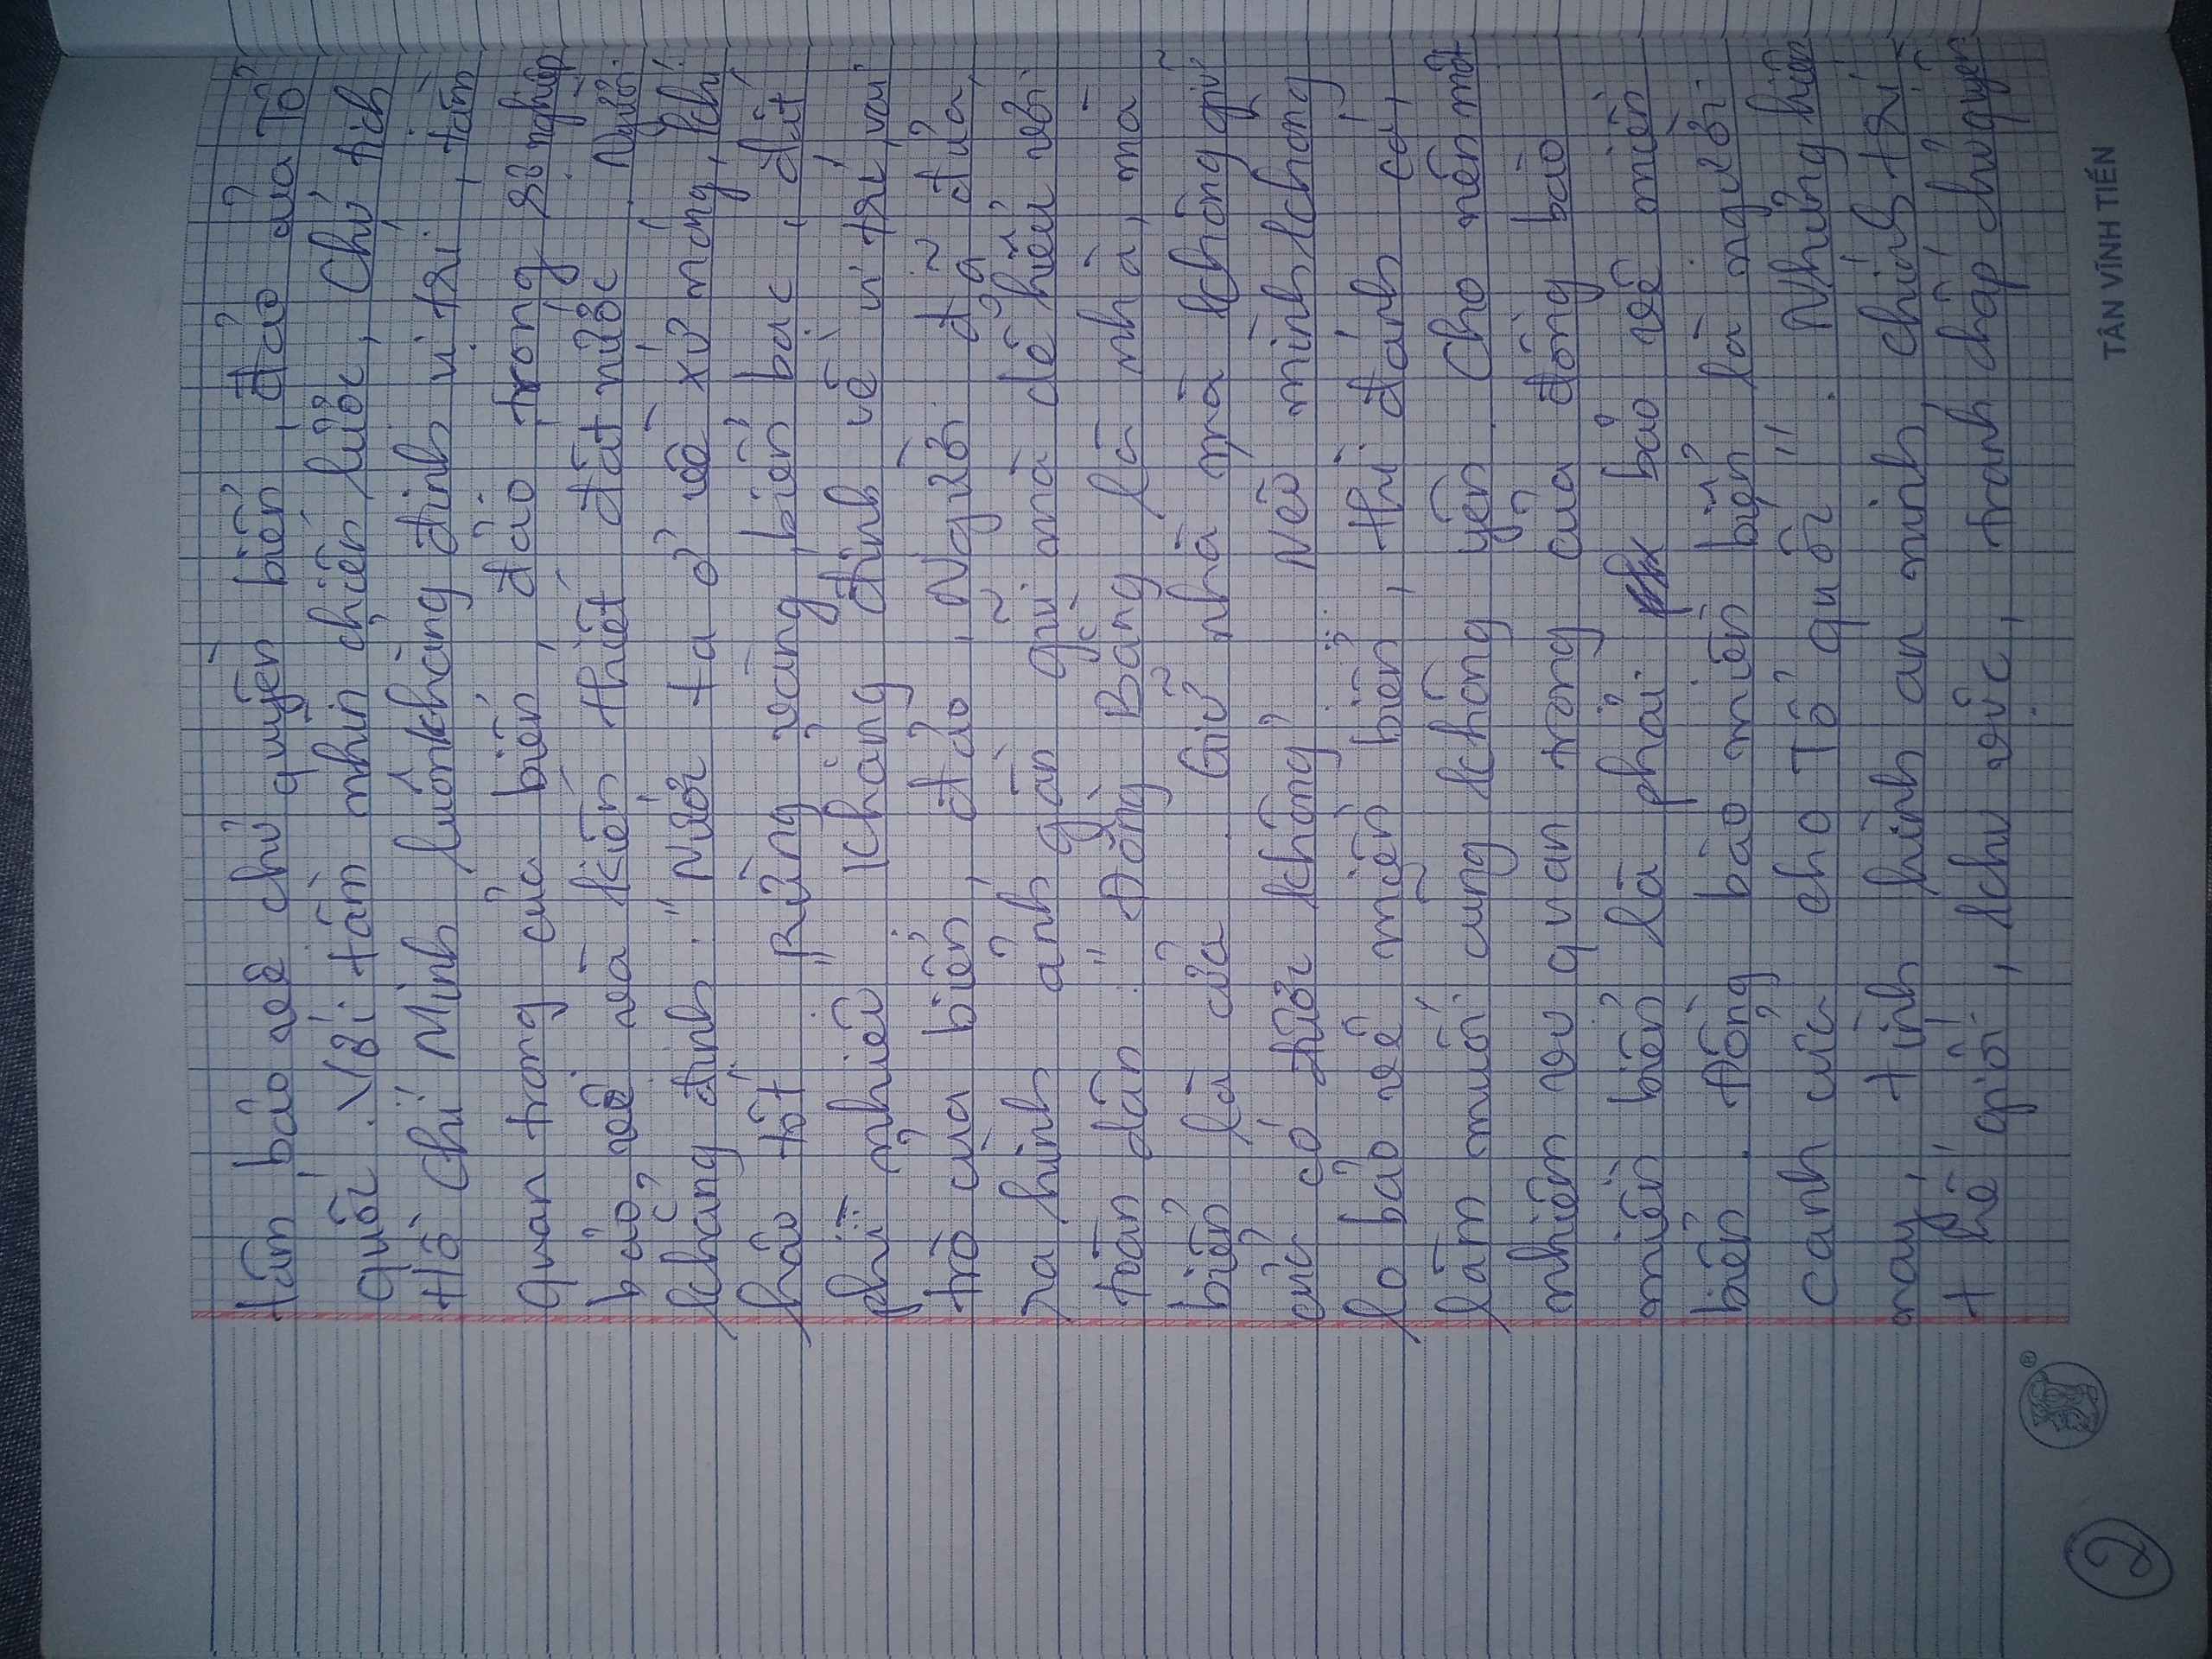 tâm bảo vệ chủ quyền biển, đảo của Tổ
quốc. Với tầm nhìn chiến lược, Chủ tịch
Hồ Chí Minh luôn khẳng định vị trí, tầm
quan trọng của biển, đảo trong sự nghiệp
bảo vệ và kiến thiết đất nước. Người
khẳng định: "Nước ta ở về xứ nóng, khí
hậu tốt. Rừng vàng biển bạc, đất
phì nhiêu". Khẳng định về vị trí, vai
trò của biển, đảo, Người đã đưa
ra hình ảnh gần gũi mà dễ hiểu với
toàn dân: "Đồng Bằng là nhà, mà
biển là cửa. Giữ nhà mà không giữ
cửa có được không? ... Nếu mình không
lo bảo vệ miền biển, thì đánh cá,
làm muối cũng không yên. Cho nên một
nhiệm vụ quan trọng của đồng bào
miền biển là phải bảo vệ miền
biển. Đồng bào miền biển là người
canh cửa cho Tổ quốc". Những hiện
nay, tình hình an ninh, chính trị
thế giới, khu vực, tranh chấp chủ quyền
2
®
TÂN VĨNH TIẾN